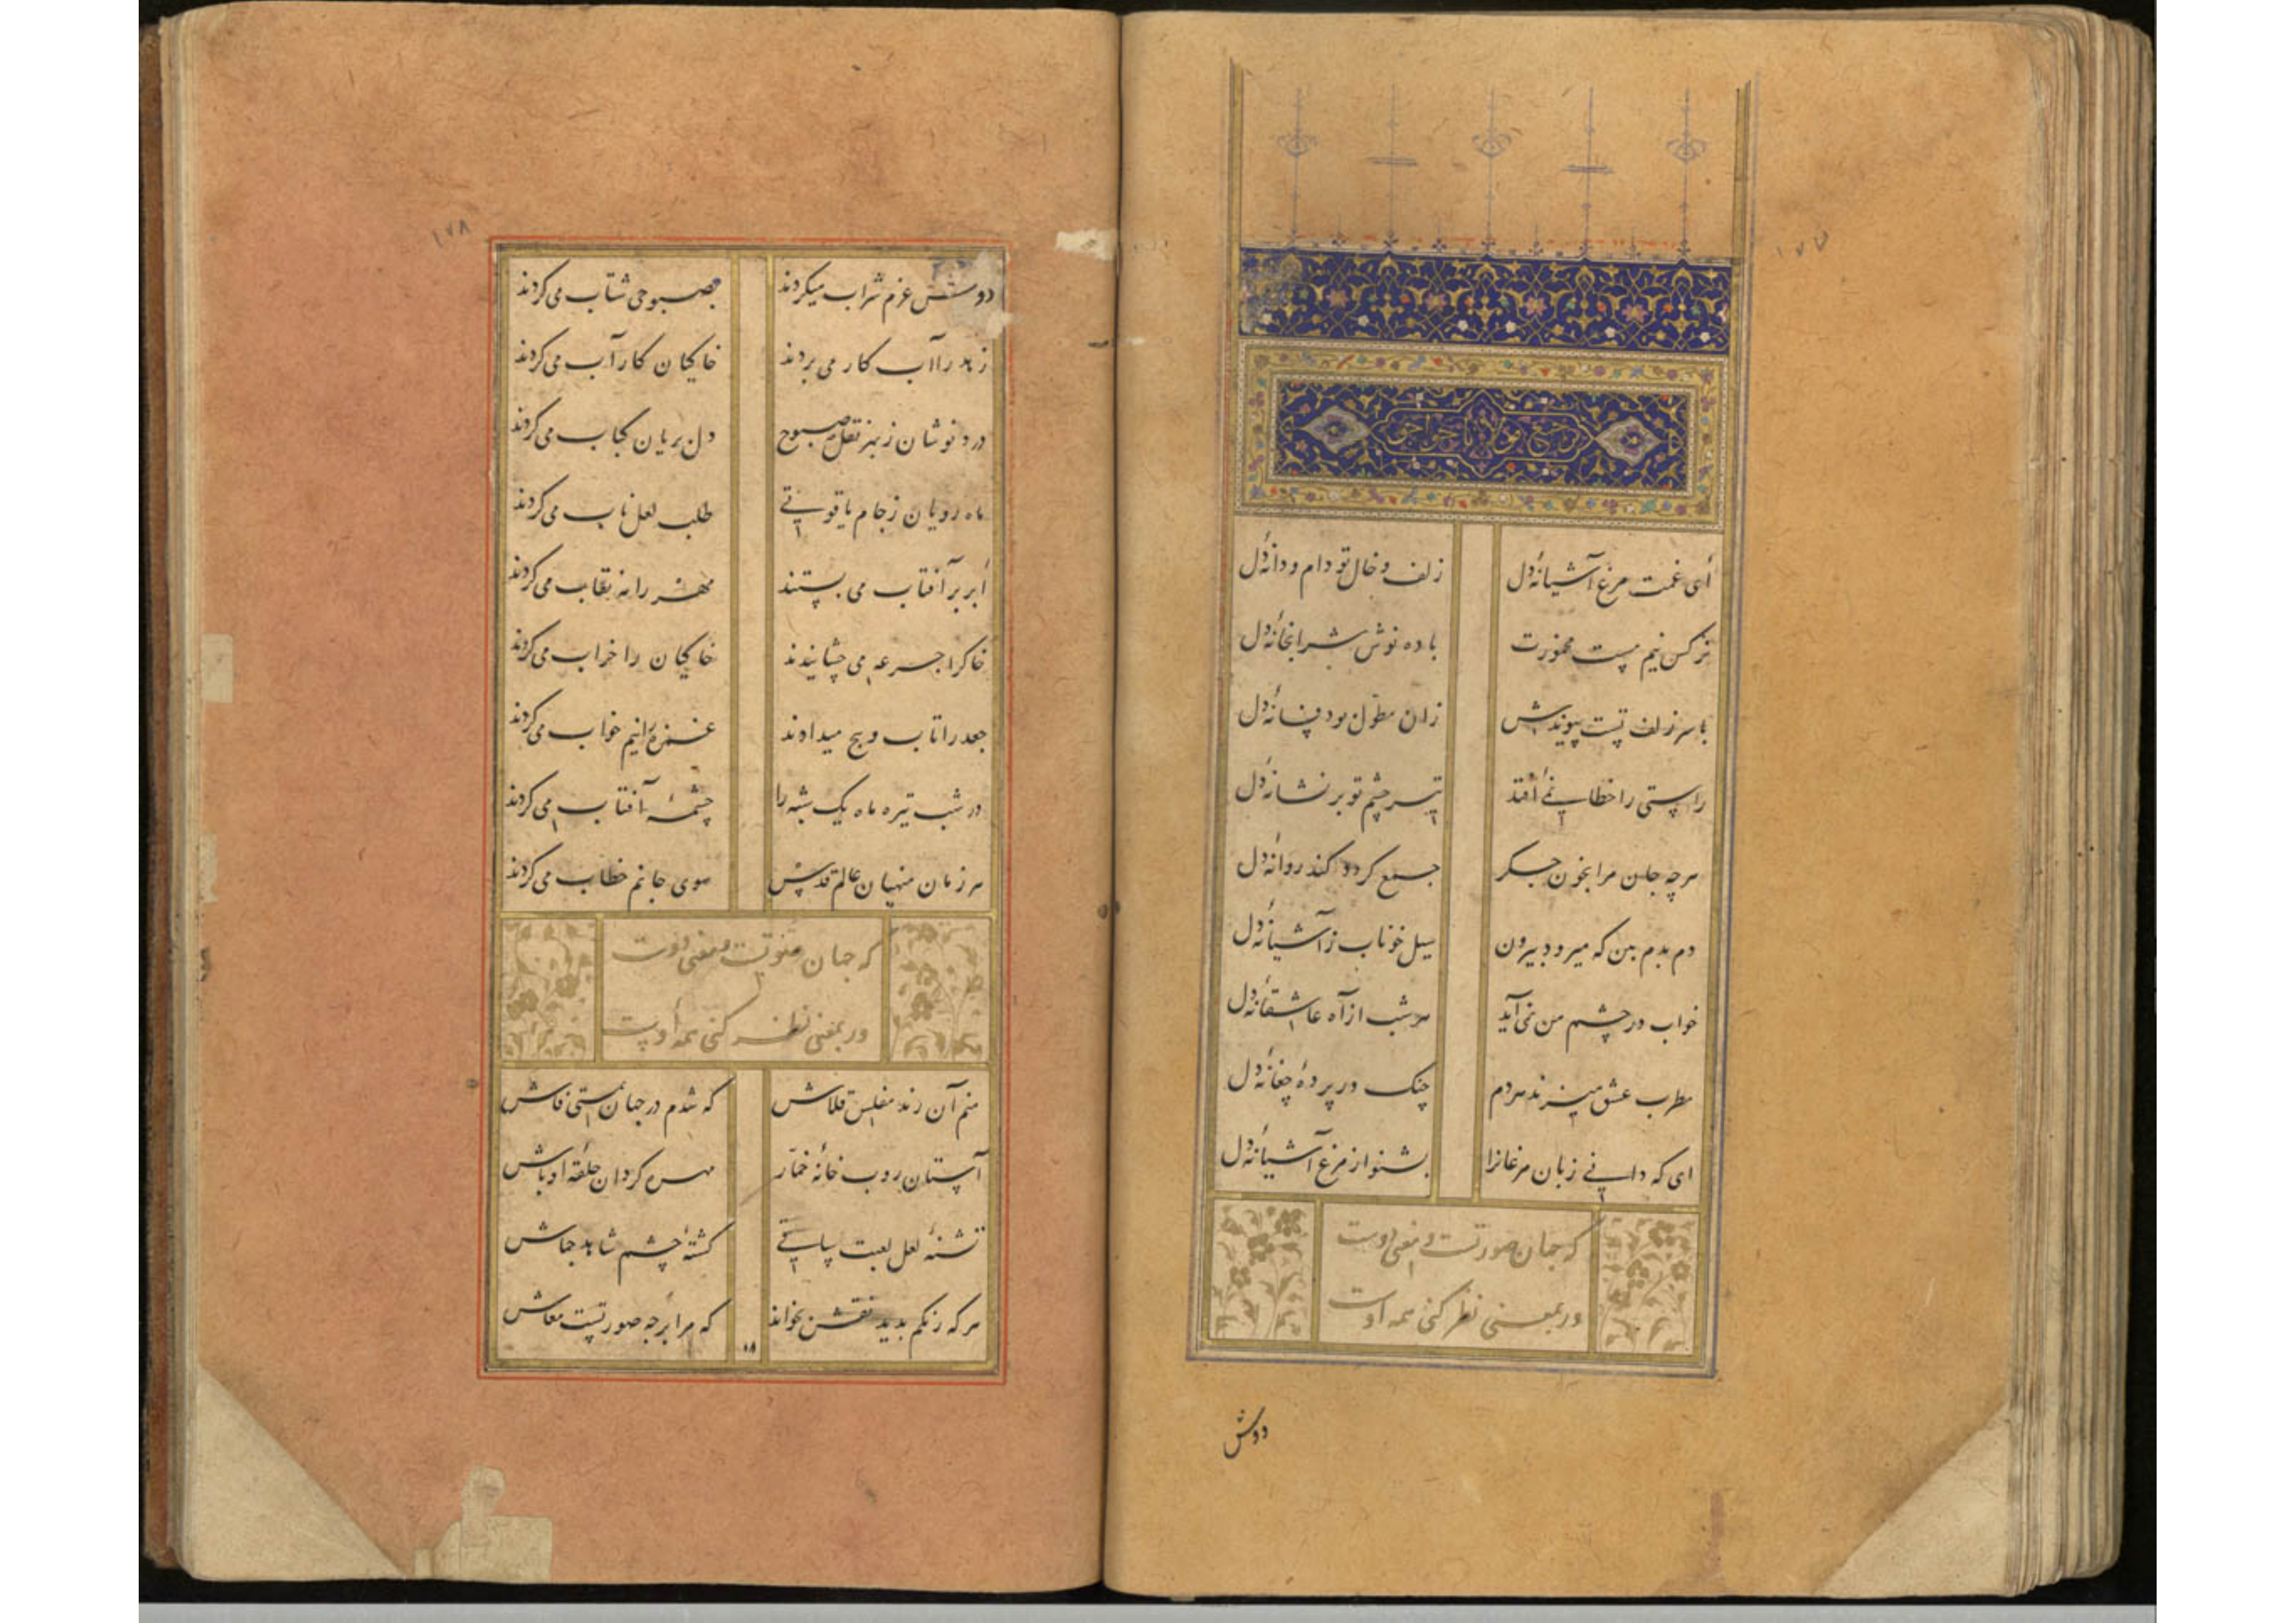 ترجیع مولانا خواجو
ای غمت مرغ آشیانهٔ دل زلف و خال تو دام و دانهٔ دل
نرکس نیم مست مخمورت باده نوش شرابخانهٔ دل
با سر زلف تست پیوندش زان مطول بود فسانهٔ دل
راستی را خطا نمی افتد تیر چشم تو بر نشانهٔ دل
هرچه جان مرا بخون جکر جمع کردد کند روانهٔ دل
دم بدم بین که میرود بیرون سیل خوناب ز آشیانهٔ دل
خواب در چشم من نمی آید هر شب از آه عاشقانهٔ دل
مطرب عشق میزند هر دم چنک در پردهٔ چغانهٔ دل
ای که دانی زبان مرغانرا بشنو از مرغ آشیانهٔ دل
که جهان صورتست و معنی دوست
ور بمعنی نظر کنی همه اوست
دوش
۱۷۸
دوش عزم شراب میکردند بصبوحی شتاب می کردند
زهد را آب کار می بردند خاکیان کار آب می کردند
درد نوشان ز بهر نقل صبوح دل بریان کباب می کردند
ماه رویان ز جام یاقوتی طلب لعل ناب می کردند
ابر بر آفتاب می بستند مهر را نقاب می کردند
خاکرا جرعه می چشانیدند خاکیان را خراب می کردند
جعد را تاب و پیچ میدادند غمزه را نیم خواب می کردند
در شب تیره ماه یک شبه را چشمهٔ آفتاب می کردند
هر زمان منهیان عالم قدس سوی جانم خطاب می کردند
که جهان صورتست و معنی دوست
ور بمعنی نظر کنی همه اوست
منم آن رند مفلس قلاش که شدم در جهان بمستی فاش
آستان روب خانهٔ خمار مهره کردان حلقهٔ اوباش
تشنهٔ لعل لعبت ساقی کشتهٔ چشم شاهد جماش
هر که رنکم بدید نقشم خواند که مرا بر چه صورتست معاش